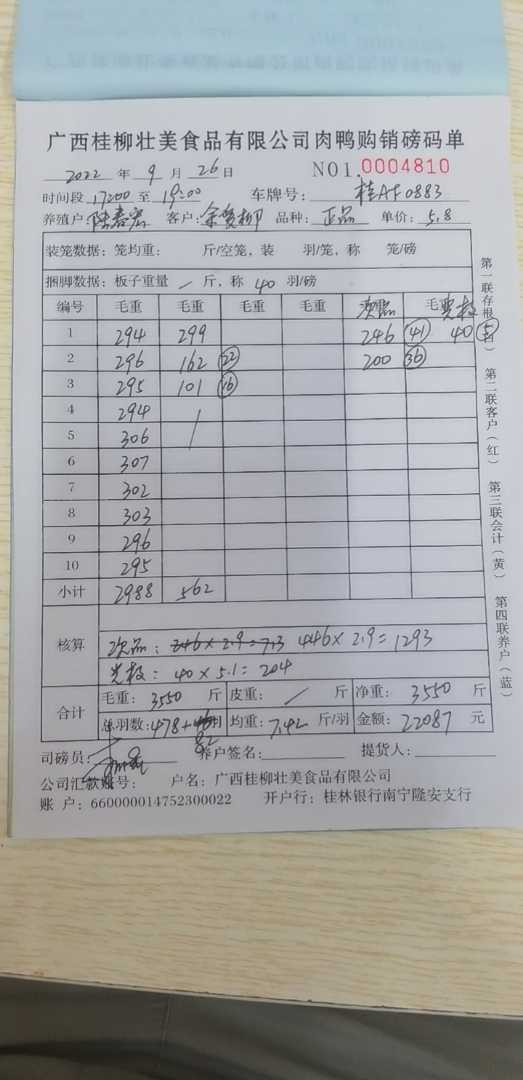 广西桂柳壮美食品有限公司肉鸭购销磅码单
2022 年 9 月 26 日 NO1. 0004810
时间段 17:00 至 19:00 车牌号: 桂AF0883
养殖户: 客户: 品种: 正品 单价: 5.8
装笼数据: 笼均重: 斤/空笼, 装 羽/笼, 称 笼/磅
捆脚数据: 板子重量 / 斤, 称 40 羽/磅
编号 毛重 毛重 毛重 毛重 次品 毛
1 294 299 246 (41) 40 (5)
2 296 162 (22) 200 (36)
3 295 101 (16)
4 294 /
5 306
6 307
7 302
8 303
9 296
10 295
小计 2988 562
核算
次品: 246×2.9=713 446×2.9=1293
40×5.1=204
合计
毛重: 3550 斤 皮重: / 斤 净重: 3550 斤
总羽数: 478+ 82 均重: 7.42 斤/羽 金额: 22087 元
司磅员: 养户签名: 提货人:
公司汇款账号: 户名: 广西桂柳壮美食品有限公司
账 户: 660000014752300022 开户行: 桂林银行南宁隆安支行
第一联存根
第二联客户(红)
第三联会计(黄)
第四联养户(蓝)